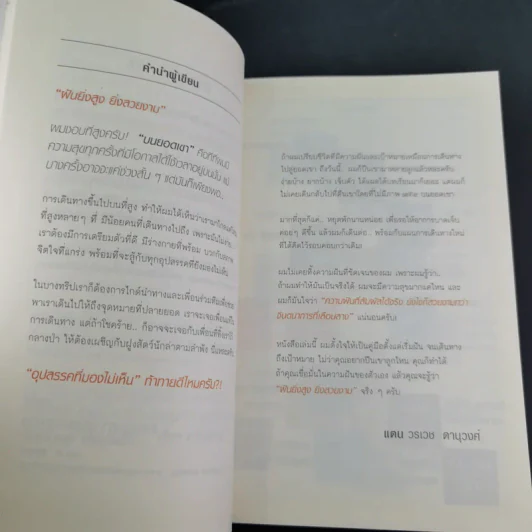 คำนำผู้เขียน
"ฝันยิ่งสูง ยิ่งสวยงาม"
ผมชอบที่สูงครับ! "บนยอดเขา" คือที่ที่ผมมี
ความสุขทุกครั้งที่มีโอกาสได้ใช้เวลาอยู่บนนั้น แม้
บางครั้งอาจจะแค่ช่วงสั้น ๆ แต่มันก็เพียงพอ...
การเดินทางขึ้นไปบนที่สูง ทำให้ผมได้เห็นว่า
ที่สูงหลาย ๆ ที่ มีน้อยคนที่เดินทางไปถึง เพราะมันไม่ง่าย
เราต้องมีการเตรียมตัวที่ดี มีร่างกายที่พร้อม บวกกับสภาพ
จิตใจที่แกร่ง พร้อมที่จะสู้กับทุกอุปสรรคที่ยังมองไม่เห็น
ในบางทริปเราก็ต้องการไกด์นำทางและเพื่อนร่วมทีม
พาเราเดินไปให้ถึงจุดหมายที่ปลายยอด เราจะเจอเพื่อน
การเดินทาง แต่ถ้าโชคร้าย.. ก็อาจจะเจอกับเพื่อนที่ทิ้งเราไว้
กลางป่า ให้ต้องเผชิญกับฝูงสัตว์นักล่าตามลำพัง
"อุปสรรคที่มองไม่เห็น" ท้าทายดีไหมครับ?!
ถ้าผมเปรียบชีวิตที่มีความฝันและเป้าหมายเหมือนการเดินทาง
ไปสู่ยอดเขา ถึงวันนี้ ผมก็ปีนเขามาหลายลูกแล้วพอสมควร
ง่ายบ้าง ยากบ้าง เจ็บตัว ได้แผลได้บทเรียนมาก็เยอะ แต่ผมก็
ไม่เคยเดินกลับไปที่ตีนเขาโดยที่ไม่มีภาพ เซลฟี่ บนยอดเขา
มากที่สุดก็แค่.. หยุดพักนานหน่อย เพื่อรอให้อาการบาดเจ็บ
ค่อยๆ ดีขึ้น แล้วผมก็เดินต่อ.. พร้อมกับแผนการเดินทางใหม่
ที่ได้คิดไว้รอบคอบกว่าเดิม!
ผมไม่เคยทิ้งความฝันที่ชัดเจนของผม เพราะผมรู้ว่า..
ถ้าผมทำให้มันเป็นจริงได้ ผมจะมีความสุขมากแค่ไหน และ
ผมก็มั่นใจว่า "ความฝันที่สัมผัสได้จริง ย่อมดีที่สวยงามกว่า
จินตนาการที่เลือนลาง" แน่นอนครับ!
หนังสือเล่มนี้ ผมตั้งใจให้เป็นคู่มือตั้งแต่ผมเริ่มฝัน จนเดินทาง
ถึงเป้าหมาย ไม่ว่าคุณอยากปีนเขาลูกไหน คุณก็ทำได้
ถ้าคุณเชื่อมั่นในความฝันของตัวเอง แล้วคุณจะรู้ว่า
"ฝันยิ่งสูง ยิ่งสวยงาม" จริง ๆ ครับ
แดน วรเวช ดานุวงศ์